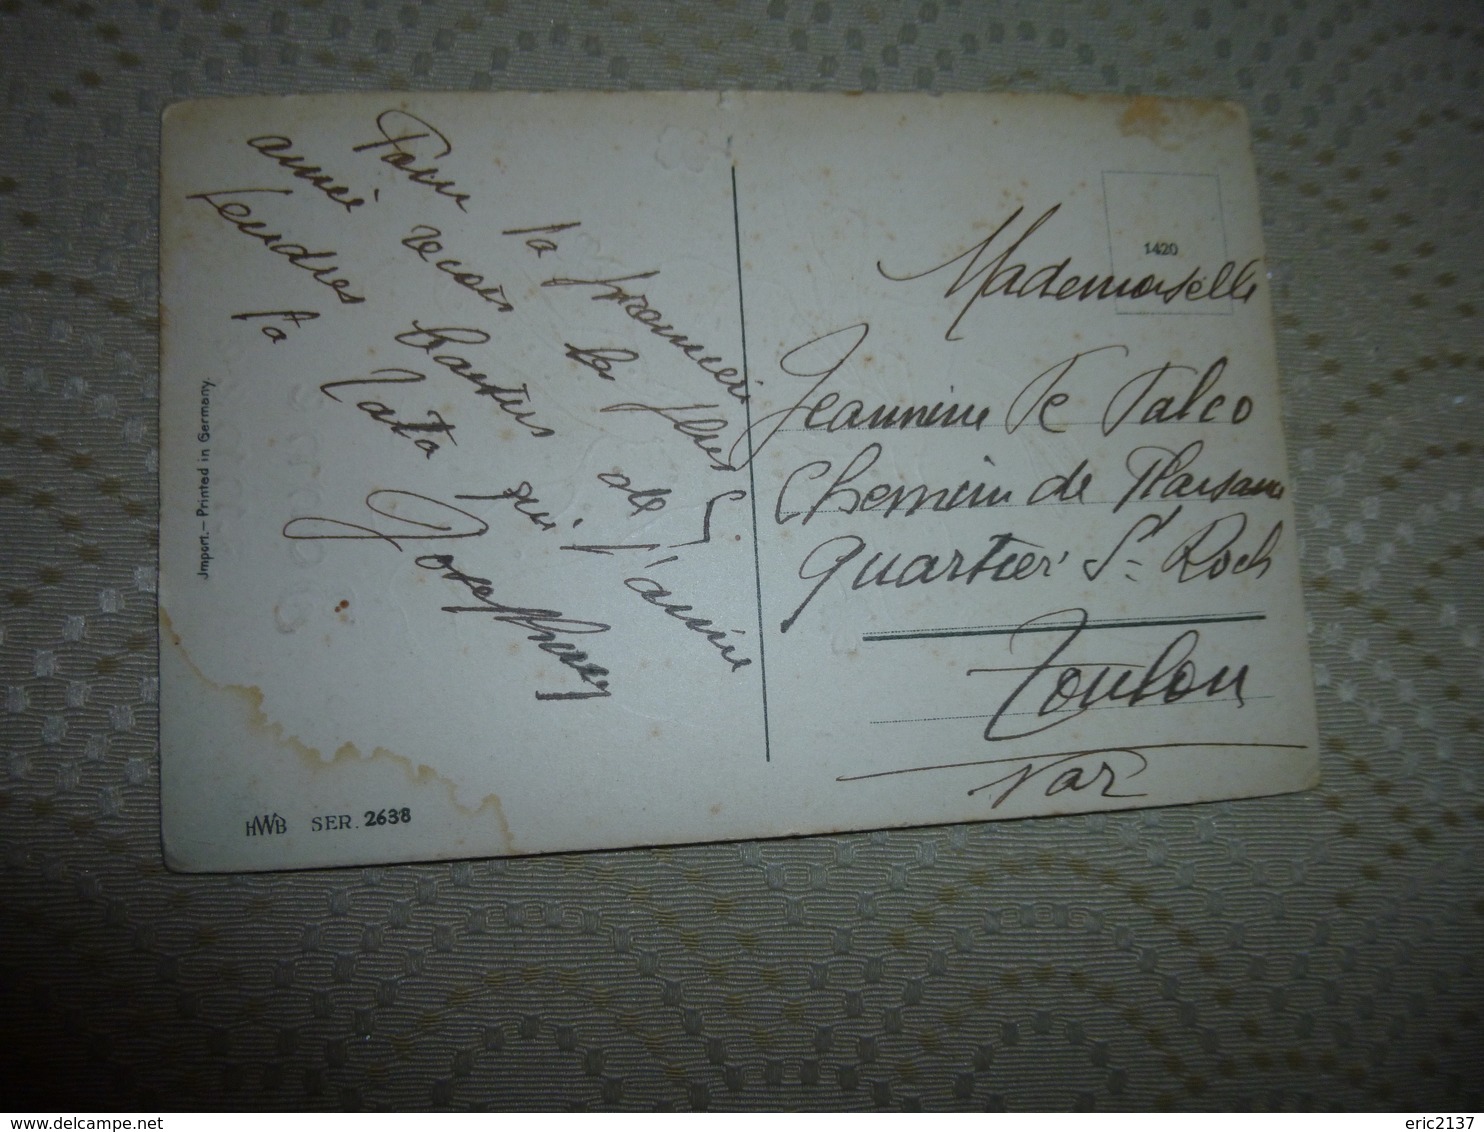 Pour la première
année reçois les plus
tendres baisers de
ta Tata qui t'aime
Josephine
Mademoiselle
Jeannine Te Talco
Chemin de
quartier St Roch
Toulon
Var
1420
Jmport.– Printed in Germany.
HWB SER. 2638
eric2137